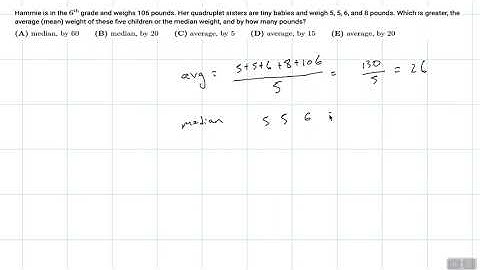 Hammie is in the 6th grade and weighs 106 pounds. Her quadruplet sisters are tiny babies and weigh 5, 5, 6, and 8 pounds. Which is greater, the
average (mean) weight of these five children or the median weight, and by how many pounds?
(A) median, by 60 (B) median, by 20 (C) average, by 5 (D) average, by 15 (E) average, by 20
avg = 5+5+6+8+106 / 5 = 130 / 5 = 26
median 5 5 6